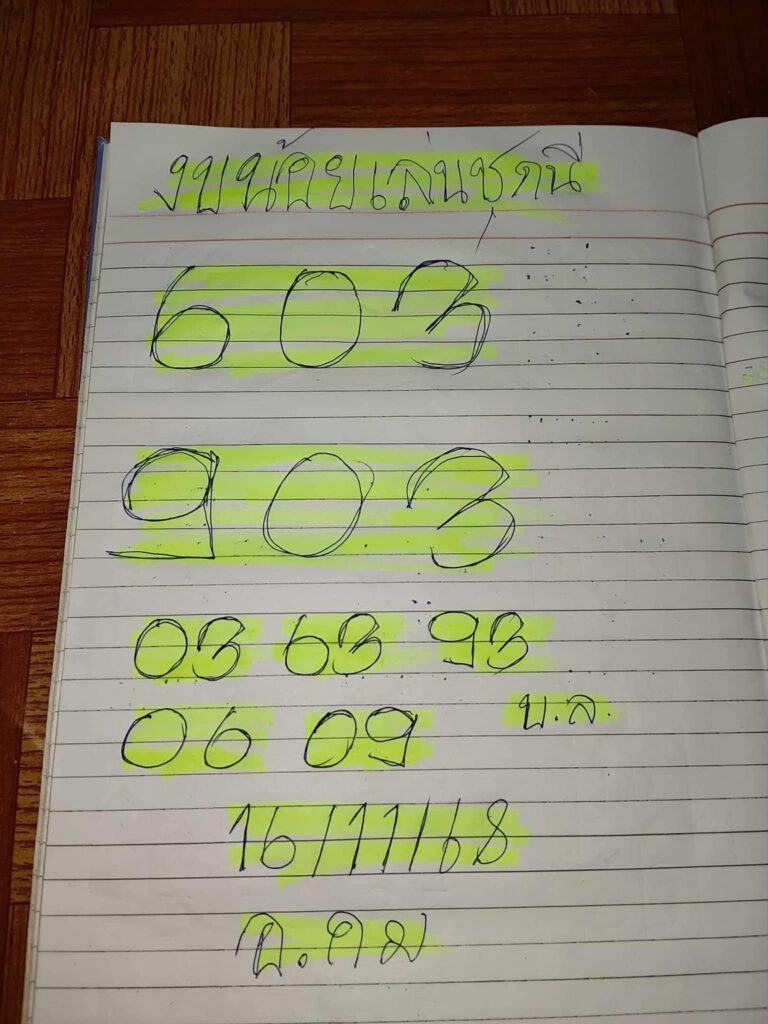 งบน้อยเล่นชุดนี้
603
903
03 63 93
06 09 บ.ล.
16/11/68
อ.คม